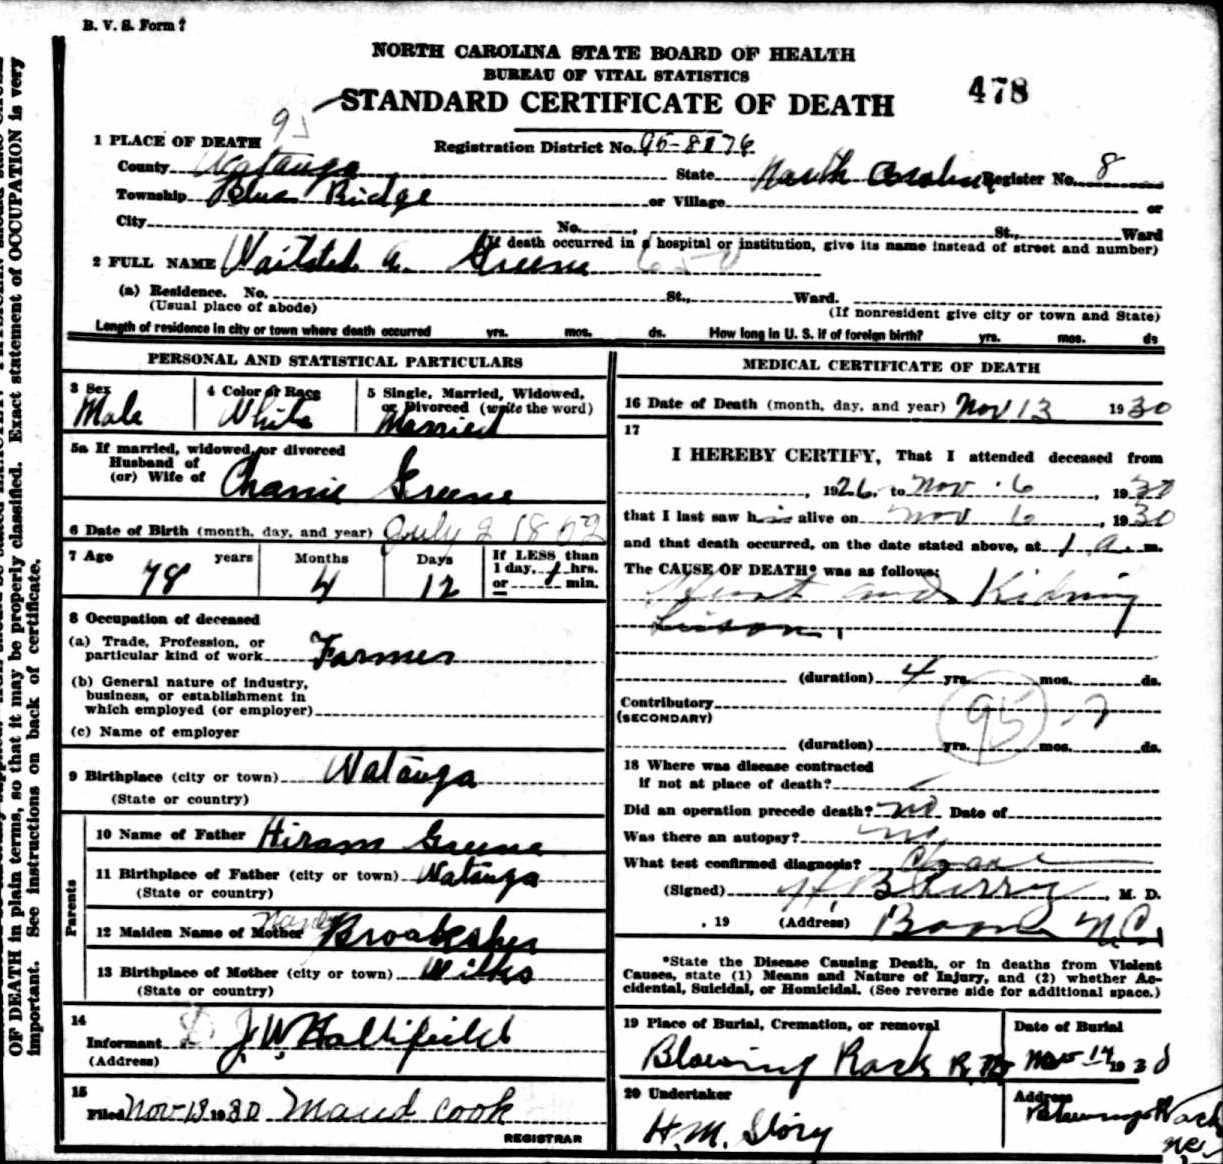 B. V. S. Form 7
NORTH CAROLINA STATE BOARD OF HEALTH
BUREAU OF VITAL STATISTICS
STANDARD CERTIFICATE OF DEATH
478
95
1 PLACE OF DEATH
Registration District No. 95-8176
County Watauga State North Carolina Register No. 8
Township Blue Ridge or Village or
City No. St., Ward
(If death occurred in a hospital or institution, give its name instead of street and number)
2 FULL NAME A. Greene 650
(a) Residence. No. St., Ward.
(Usual place of abode) (If nonresident give city or town and State)
Length of residence in city or town where death occurred yrs. mos. ds. How long in U. S. if of foreign birth? yrs. mos. ds
PERSONAL AND STATISTICAL PARTICULARS
3 Sex 4 Color or Race 5 Single, Married, Widowed,
or Divorced (write the word)
Male White Married
5a If married, widowed, or divorced
Husband of
(or) Wife of Greene
6 Date of Birth (month, day, and year) July 2 1852
7 Age years Months Days If LESS than
1 day, hrs.
or min.
78 4 12
8 Occupation of deceased
(a) Trade, Profession, or
particular kind of work Farmer
(b) General nature of industry,
business, or establishment in
which employed (or employer)
(c) Name of employer
9 Birthplace (city or town) Watauga
(State or country)
Parents
10 Name of Father Hiram Greene
11 Birthplace of Father (city or town) Watauga
(State or country)
12 Maiden Name of Mother
13 Birthplace of Mother (city or town) Wilks
(State or country)
14
Informant J. W. Hollifield
(Address)
15
Filed Nov 13 1930 Maud Cook
REGISTRAR
MEDICAL CERTIFICATE OF DEATH
16 Date of Death (month, day, and year) Nov 13 1930
17
I HEREBY CERTIFY, That I attended deceased from
, 1926, to Nov. 6, 1930
that I last saw him alive on Nov 6, 1930
and that death occurred, on the date stated above, at 1 a. m.
The CAUSE OF DEATH* was as follows:
Heart and Kidney
(duration) 4 yrs. mos. ds.
Contributory
(SECONDARY)
95
(duration) yrs. mos. ds.
18 Where was disease contracted
if not at place of death?
Did an operation precede death? no Date of
Was there an autopsy? no
What test confirmed diagnosis?
(Signed) H. B. Perry, M. D.
, 19 (Address) Boone N.C.
*State the Disease Causing Death, or in deaths from Violent
Causes, state (1) Means and Nature of Injury, and (2) whether Ac-
cidental, Suicidal, or Homicidal. (See reverse side for additional space.)
19 Place of Burial, Cremation, or removal Date of Burial
Blowing Rock Nov 14 1930
20 Undertaker Address
H. M. Story Blowing Rock
N.C.
OF DEATH in plain terms, so that it may be properly classified. Exact statement of OCCUPATION is very
important. See instructions on back of certificate.